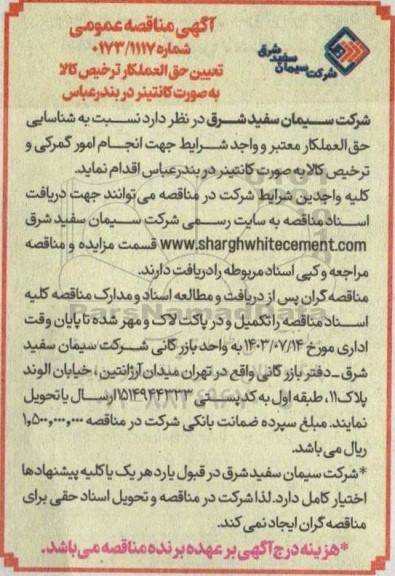 آگهی مناقصه عمومی
شماره ۰۱۷۳/۱۱۱۷
تعیین حق العملکار ترخیص کالا
به صورت کانتینر در بندرعباس
شرکت سیمان سفید شرق
شرکت سیمان سفید شرق در نظر دارد نسبت به شناسایی
حق العملکار معتبر و واجد شرایط جهت انجام امور گمرکی و
ترخیص کالا به صورت کانتینر در بندرعباس اقدام نماید.
کلیه واجدین شرایط شرکت در مناقصه می توانند جهت دریافت
اسناد مناقصه به سایت رسمی شرکت سیمان سفید شرق
www.sharghwhitecement.com قسمت مزایده و مناقصه
مراجعه و کپی اسناد مربوطه را دریافت دارند.
مناقصه گران پس از دریافت و مطالعه اسناد و مدارک مناقصه کلیه
اسناد مناقصه را تکمیل و در پاکت لاک و مهر شده تا پایان وقت
اداری مورخ ۱۴۰۳/۰۷/۱۴ به واحد بازرگانی شرکت سیمان سفید
شرق - دفتر بازرگانی واقع در تهران میدان آرژانتین ، خیابان الوند
پلاک۱۱، طبقه اول به کدپستی ۱۵۱۴۹۴۴۳۳۳ ارسال یا تحویل
نمایند. مبلغ سپرده ضمانت بانکی شرکت در مناقصه ۱,۵۰۰,۰۰۰,۰۰۰
ریال می باشد.
*شرکت سیمان سفید شرق در قبول یا رد هر یک یا کلیه پیشنهادها
اختیار کامل دارد. لذا شرکت در مناقصه و تحویل اسناد حقی برای
مناقصه گران ایجاد نمی کند.
*هزینه درج آگهی بر عهده برنده مناقصه می باشد.